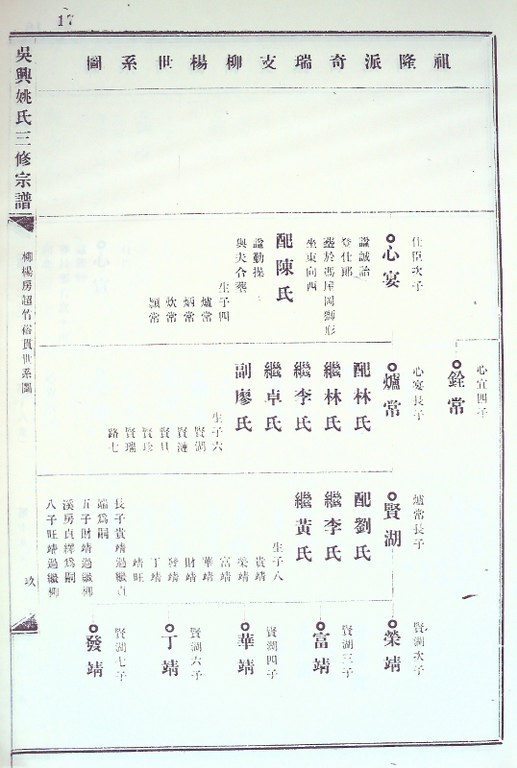 17
祖隆派奇瑞支柳楊世系圖
吳興姚氏三修宗譜
柳楊房超竹裕貫世系圖
玖
心宜四子
銓常
仕臣次子
心宴
諡誠詒
登仕郎
坐東向西
配陳氏
諡勤操
與夫合葬
生子四
爐常
炳常
炊常
顯常
心宴長子
爐常
配林氏
繼林氏
繼李氏
繼卓氏
副廖氏
生子六
賢湖
賢漣
賢瑞
路七
爐常長子
賢湖
配劉氏
繼李氏
繼黃氏
生子八
貴靖
榮靖
富靖
華靖
財靖
發靖
丁靖
靖旺
長子貴靖過繼貞
端為嗣
五子財靖過繼柳
溪房貞釋為嗣
八子旺靖過繼柳
賢湖次子
榮靖
賢湖三子
富靖
賢湖四子
華靖
賢湖六子
丁靖
賢湖七子
發靖